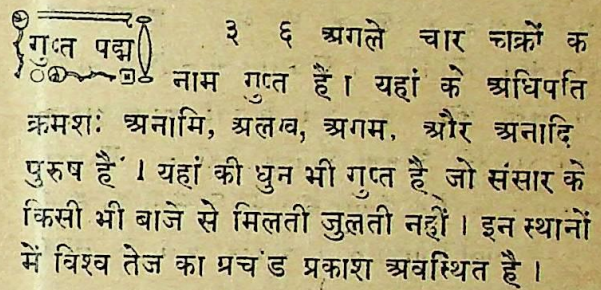 गुप्त पद्म
३ ६ अगले चार चक्रों क
नाम गुप्त हैं । यहां के अधिपति
क्रमशः अनामि, अलख, अगम, और अनादि
पुरुष हैं । यहां की धुन भी गुप्त है जो संसार के
किसी भी बाजे से मिलती जुलती नहीं । इन स्थानों
में विश्व तेज का प्रचंड प्रकाश अवस्थित है ।